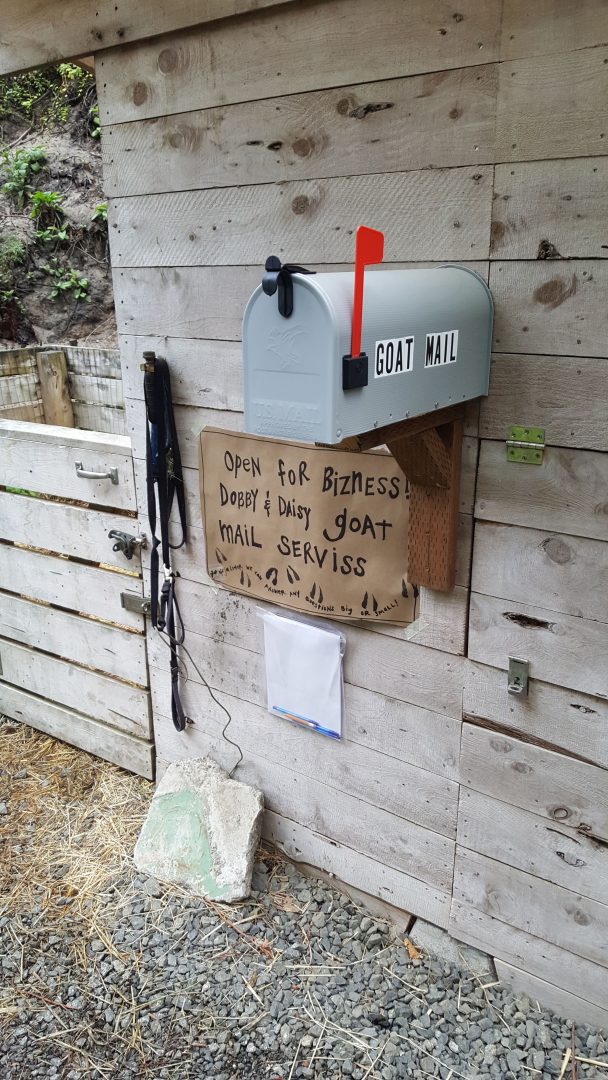 GOAT MAIL
U.S. MAIL
OPEN FOR BIZNESS!
DOBBY & DAISY GOAT
MAIL SERVISS
WE CAN ANSWER ANY QUESTIONS BIG OR SMALL!